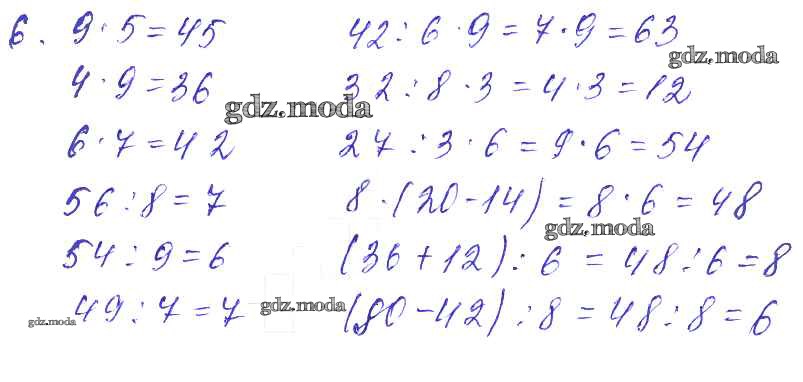 6. 9 · 5 = 45 42 : 6 · 9 = 7 · 9 = 63
gdz.moda
4 · 9 = 36 32 : 8 · 3 = 4 · 3 = 12
gdz.moda
6 · 7 = 42 27 : 3 · 6 = 9 · 6 = 54
56 : 8 = 7 8 · (20 - 14) = 8 · 6 = 48
gdz.moda
54 : 9 = 6 (36 + 12) : 6 = 48 : 6 = 8
49 : 7 = 7 (80 - 42) : 8 = 48 : 8 = 6
gdz.moda
gdz.moda